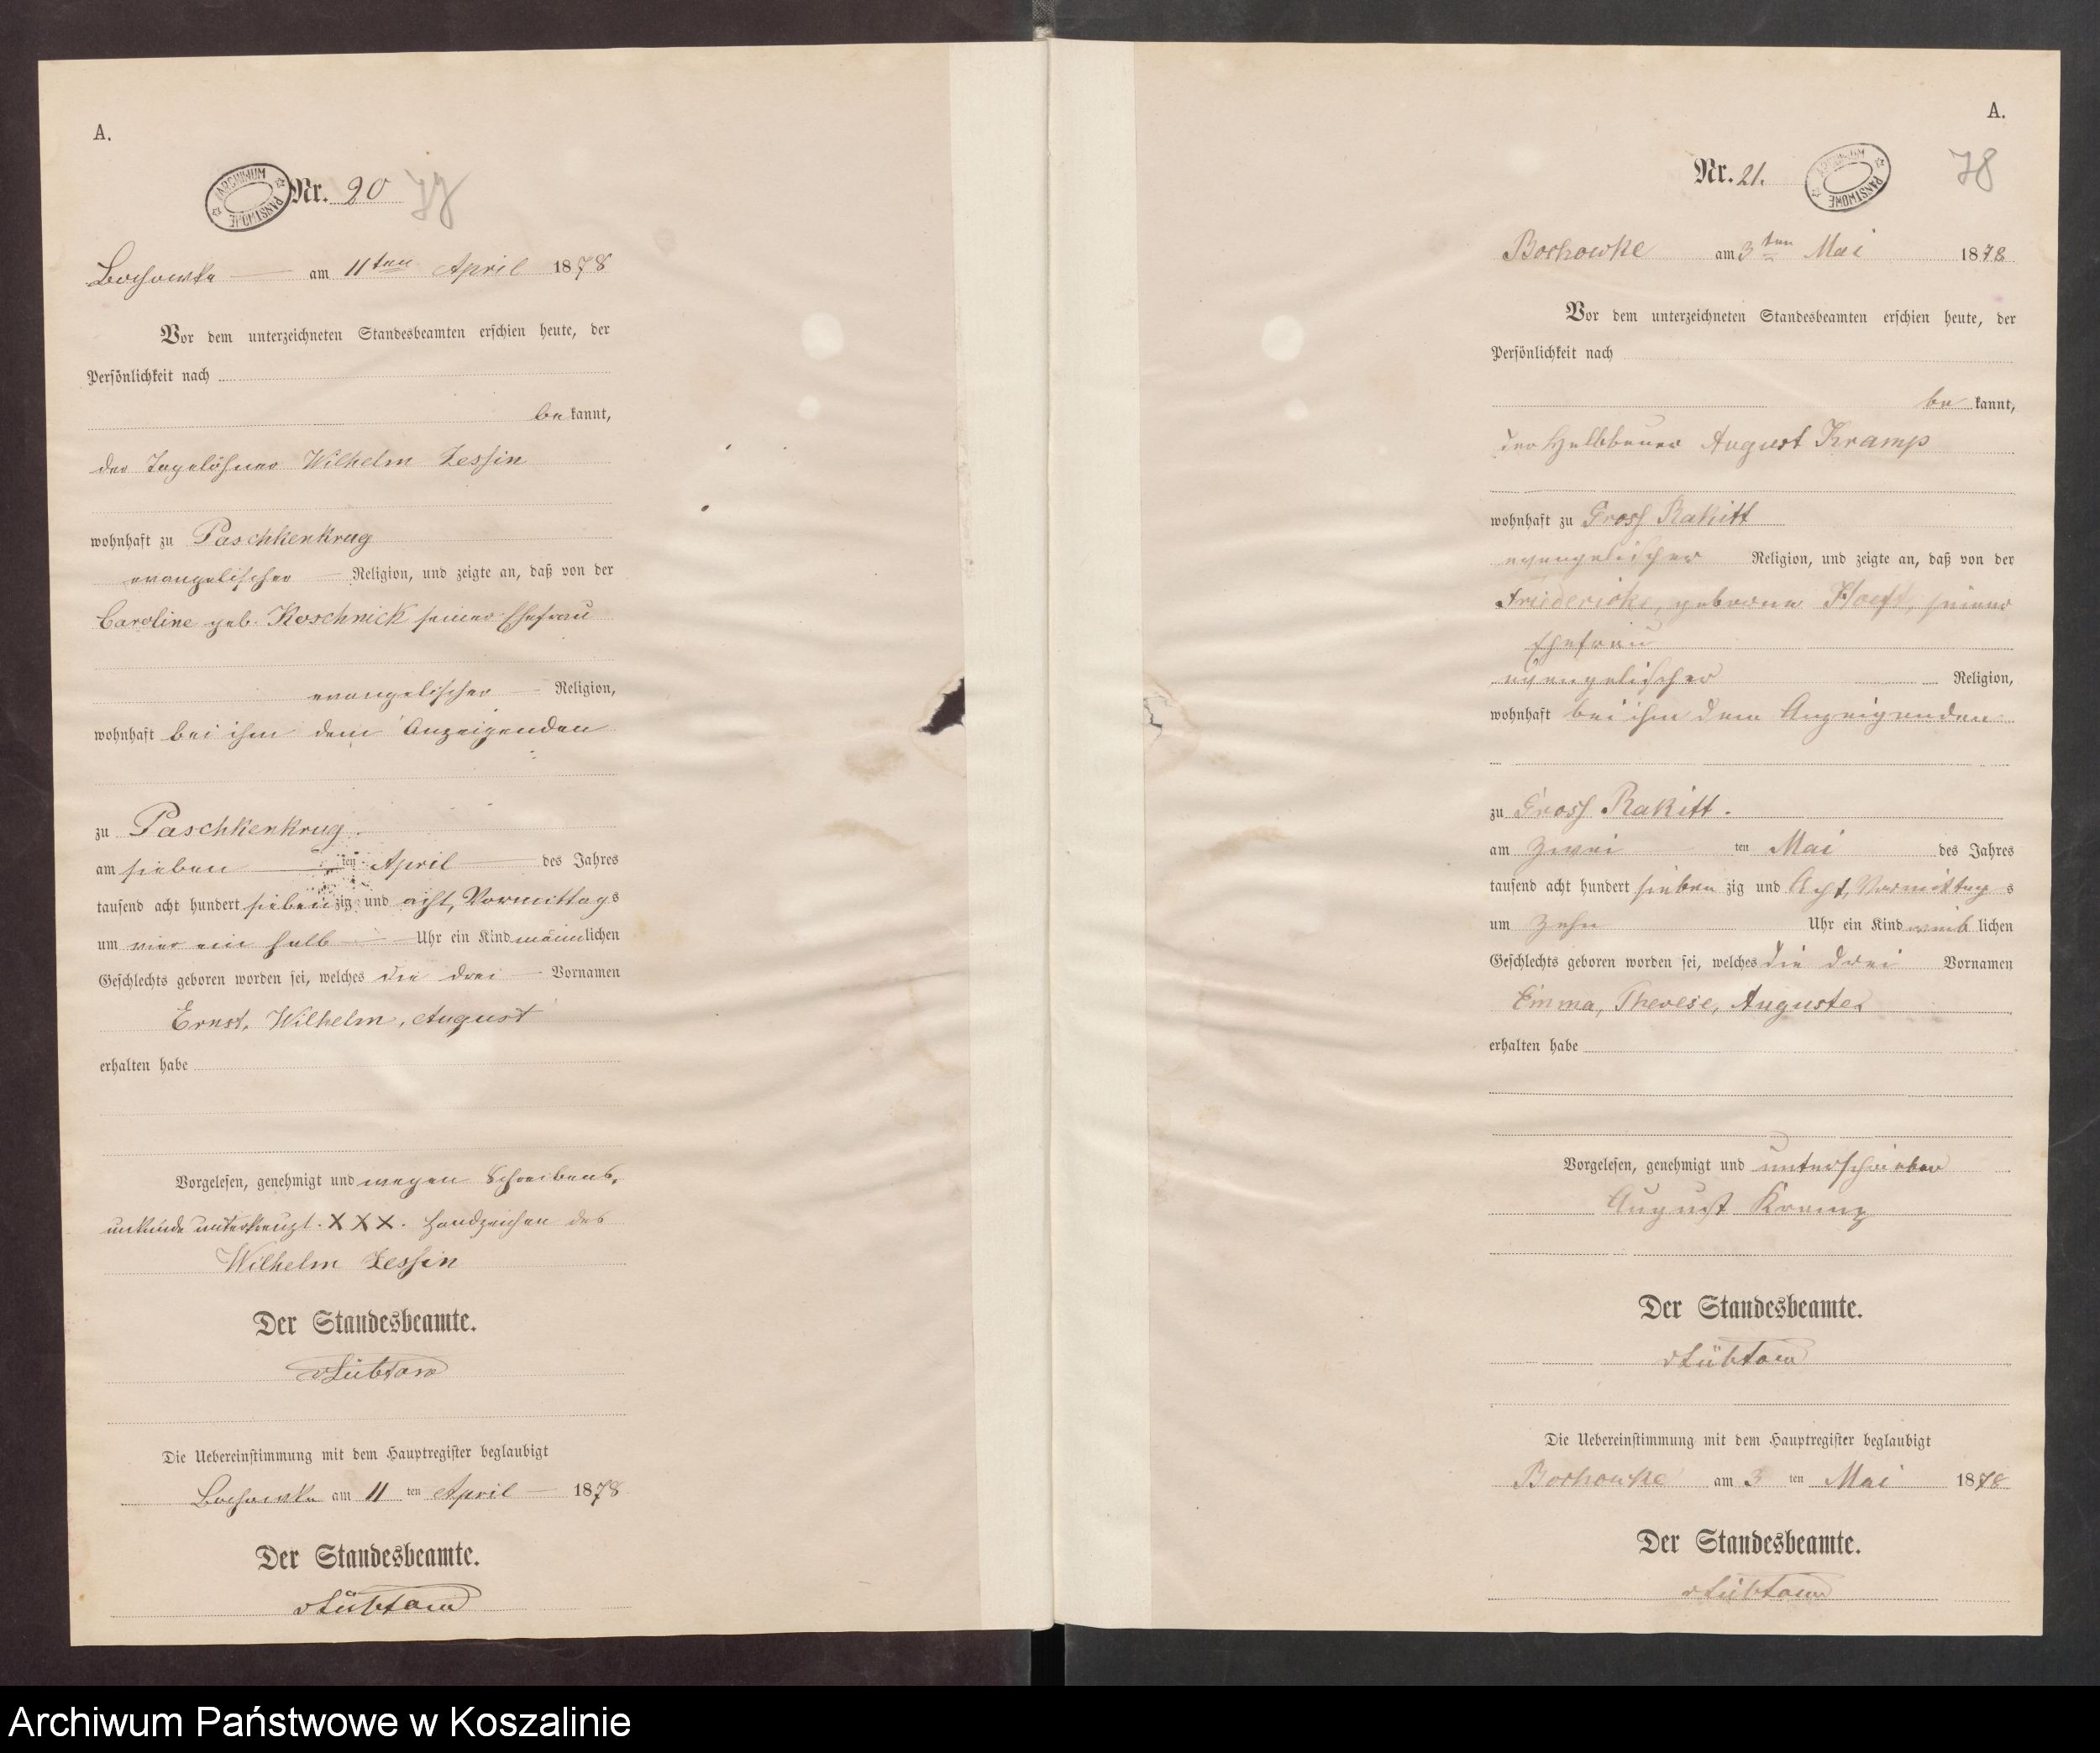 A.
ARCHIWUM PAŃSTWOWE
Nr. 20 77
Bochowke am 11ten April 1878
Vor dem unterzeichneten Standesbeamten erschien heute, der
Persönlichkeit nach
bekannt,
der Tagelöhner Wilhelm Zessin
wohnhaft zu Paschkenkrug
evangelischer Religion, und zeigte an, daß von der
Caroline geb. Koschnick seiner Ehefrau
evangelischer Religion,
wohnhaft bei ihm dem Anzeigenden
zu Paschkenkrug.
am sieben ten April des Jahres
tausend acht hundert siebenzig und acht, Vormittags
um vier ein halb Uhr ein Kind männlichen
Geschlechts geboren worden sei, welches die drei Vornamen
Ernst, Wilhelm, August
erhalten habe
Vorgelesen, genehmigt und wegen Schreibens,
unkunde unterkreuzt. XXX. Handzeichen des
Wilhelm Zessin
Der Standesbeamte.
Die Uebereinstimmung mit dem Hauptregister beglaubigt
Bochowke am 11 ten April 1878
Der Standesbeamte.
A.
Nr. 21.
ARCHIWUM PAŃSTWOWE
78
Bochowke am 3ten Mai 1878
Vor dem unterzeichneten Standesbeamten erschien heute, der
Persönlichkeit nach
be kannt,
der Halbbauer August Kramp
wohnhaft zu Gross Rakitt
evangelischer Religion, und zeigte an, daß von der
Friedericke, geborene Hoeft, seiner
Ehefrau
evangelischer Religion,
wohnhaft bei ihm dem Anzeigenden
zu Gross Rakitt.
am zwei ten Mai des Jahres
tausend acht hundert sieben zig und Acht, Vormittag s
um zehn Uhr ein Kind weib lichen
Geschlechts geboren worden sei, welches die drei Vornamen
Emma, Therese, Auguste
erhalten habe
Vorgelesen, genehmigt und unterschrieben
August Kramp
Der Standesbeamte.
Die Uebereinstimmung mit dem Hauptregister beglaubigt
Bochowke am 3 ten Mai 1878
Der Standesbeamte.
Archiwum Państwowe w Koszalinie